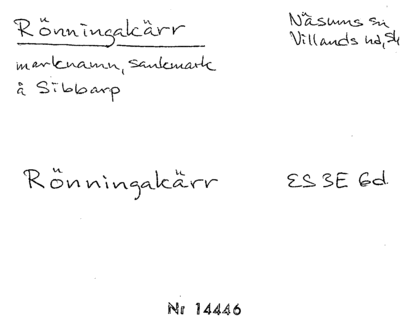 Rönningakärr
Näsums sn
Villands hd, Sk
marknamn, sankmark
å Sibbarp
Rönningakärr
ES 3E 6d
Nr 14446